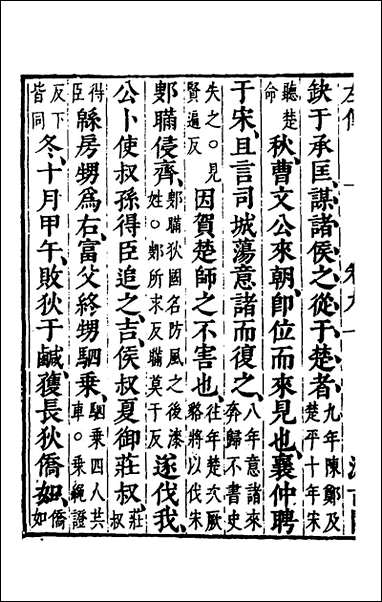 缺于承匡、謀諸侯之從于楚者、九年陳鄭及楚平十年宋
聽楚命秋、曹文公來朝、即位而來見也、襄仲聘
于宋、且言司城蕩意諸而復之、八年意諸來奔歸不書史
失之○見賢遍反因賀楚師之不害也、往年楚次厥貉將以伐宋
鄋瞞侵齊、鄋瞞狄國名防風之後漆姓○鄋所求反瞞莫干反遂伐我、
公卜使叔孫得臣追之、吉、侯叔夏御莊叔、莊叔
得臣緜房甥爲右、富父終甥駟乘、駟乘四人共車○乘繩證
反下皆同冬、十月甲午、敗狄于鹹、獲長狄僑如、僑如